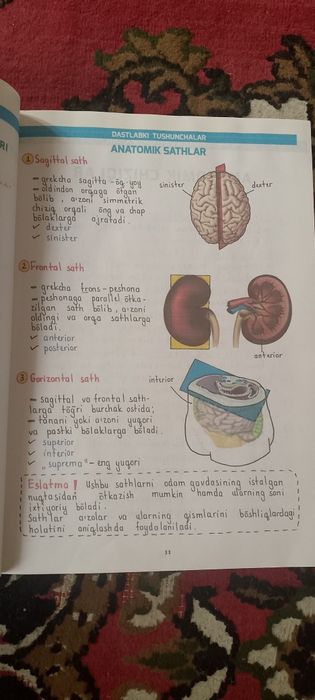 DASTLABKI TUSHUNCHALAR
ANATOMIK SATHLAR
1 Sagittal sath
– grekcha sagitta – õq-yoy
– oldindan orqaga õtgan
bõlib, a'zoni simmetrik
chiziq orqali õng va chap
bõlaklarga ajratadi.
✓ dexter
✓ sinister
sinister
dexter
2 Frontal sath
– grekcha frons – peshona
– peshonaga parallel õtka-
zilgan sath bõlib, a'zoni
oldingi va orqa sathlarga
bõladi.
✓ anterior
✓ posterior
anterior
3 Gorizontal sath
– sagittal va frontal sath-
larga tõg'ri burchak ostida;
– tanani yoki a'zoni yuqori
va pastki bõlaklarga bõladi.
✓ superior
✓ inferior
✓ „suprema" – eng yuqori
interior
Eslatma! Ushbu sathlarni odam gavdasining istalgan
nuqtasidan õtkazish mumkin hamda ularning soni
ixtiyoriy bõladi.
Sathlar a'zolar va ularning qismlarini bõshliqlardagi
holatini aniqlashda foydalaniladi.
11